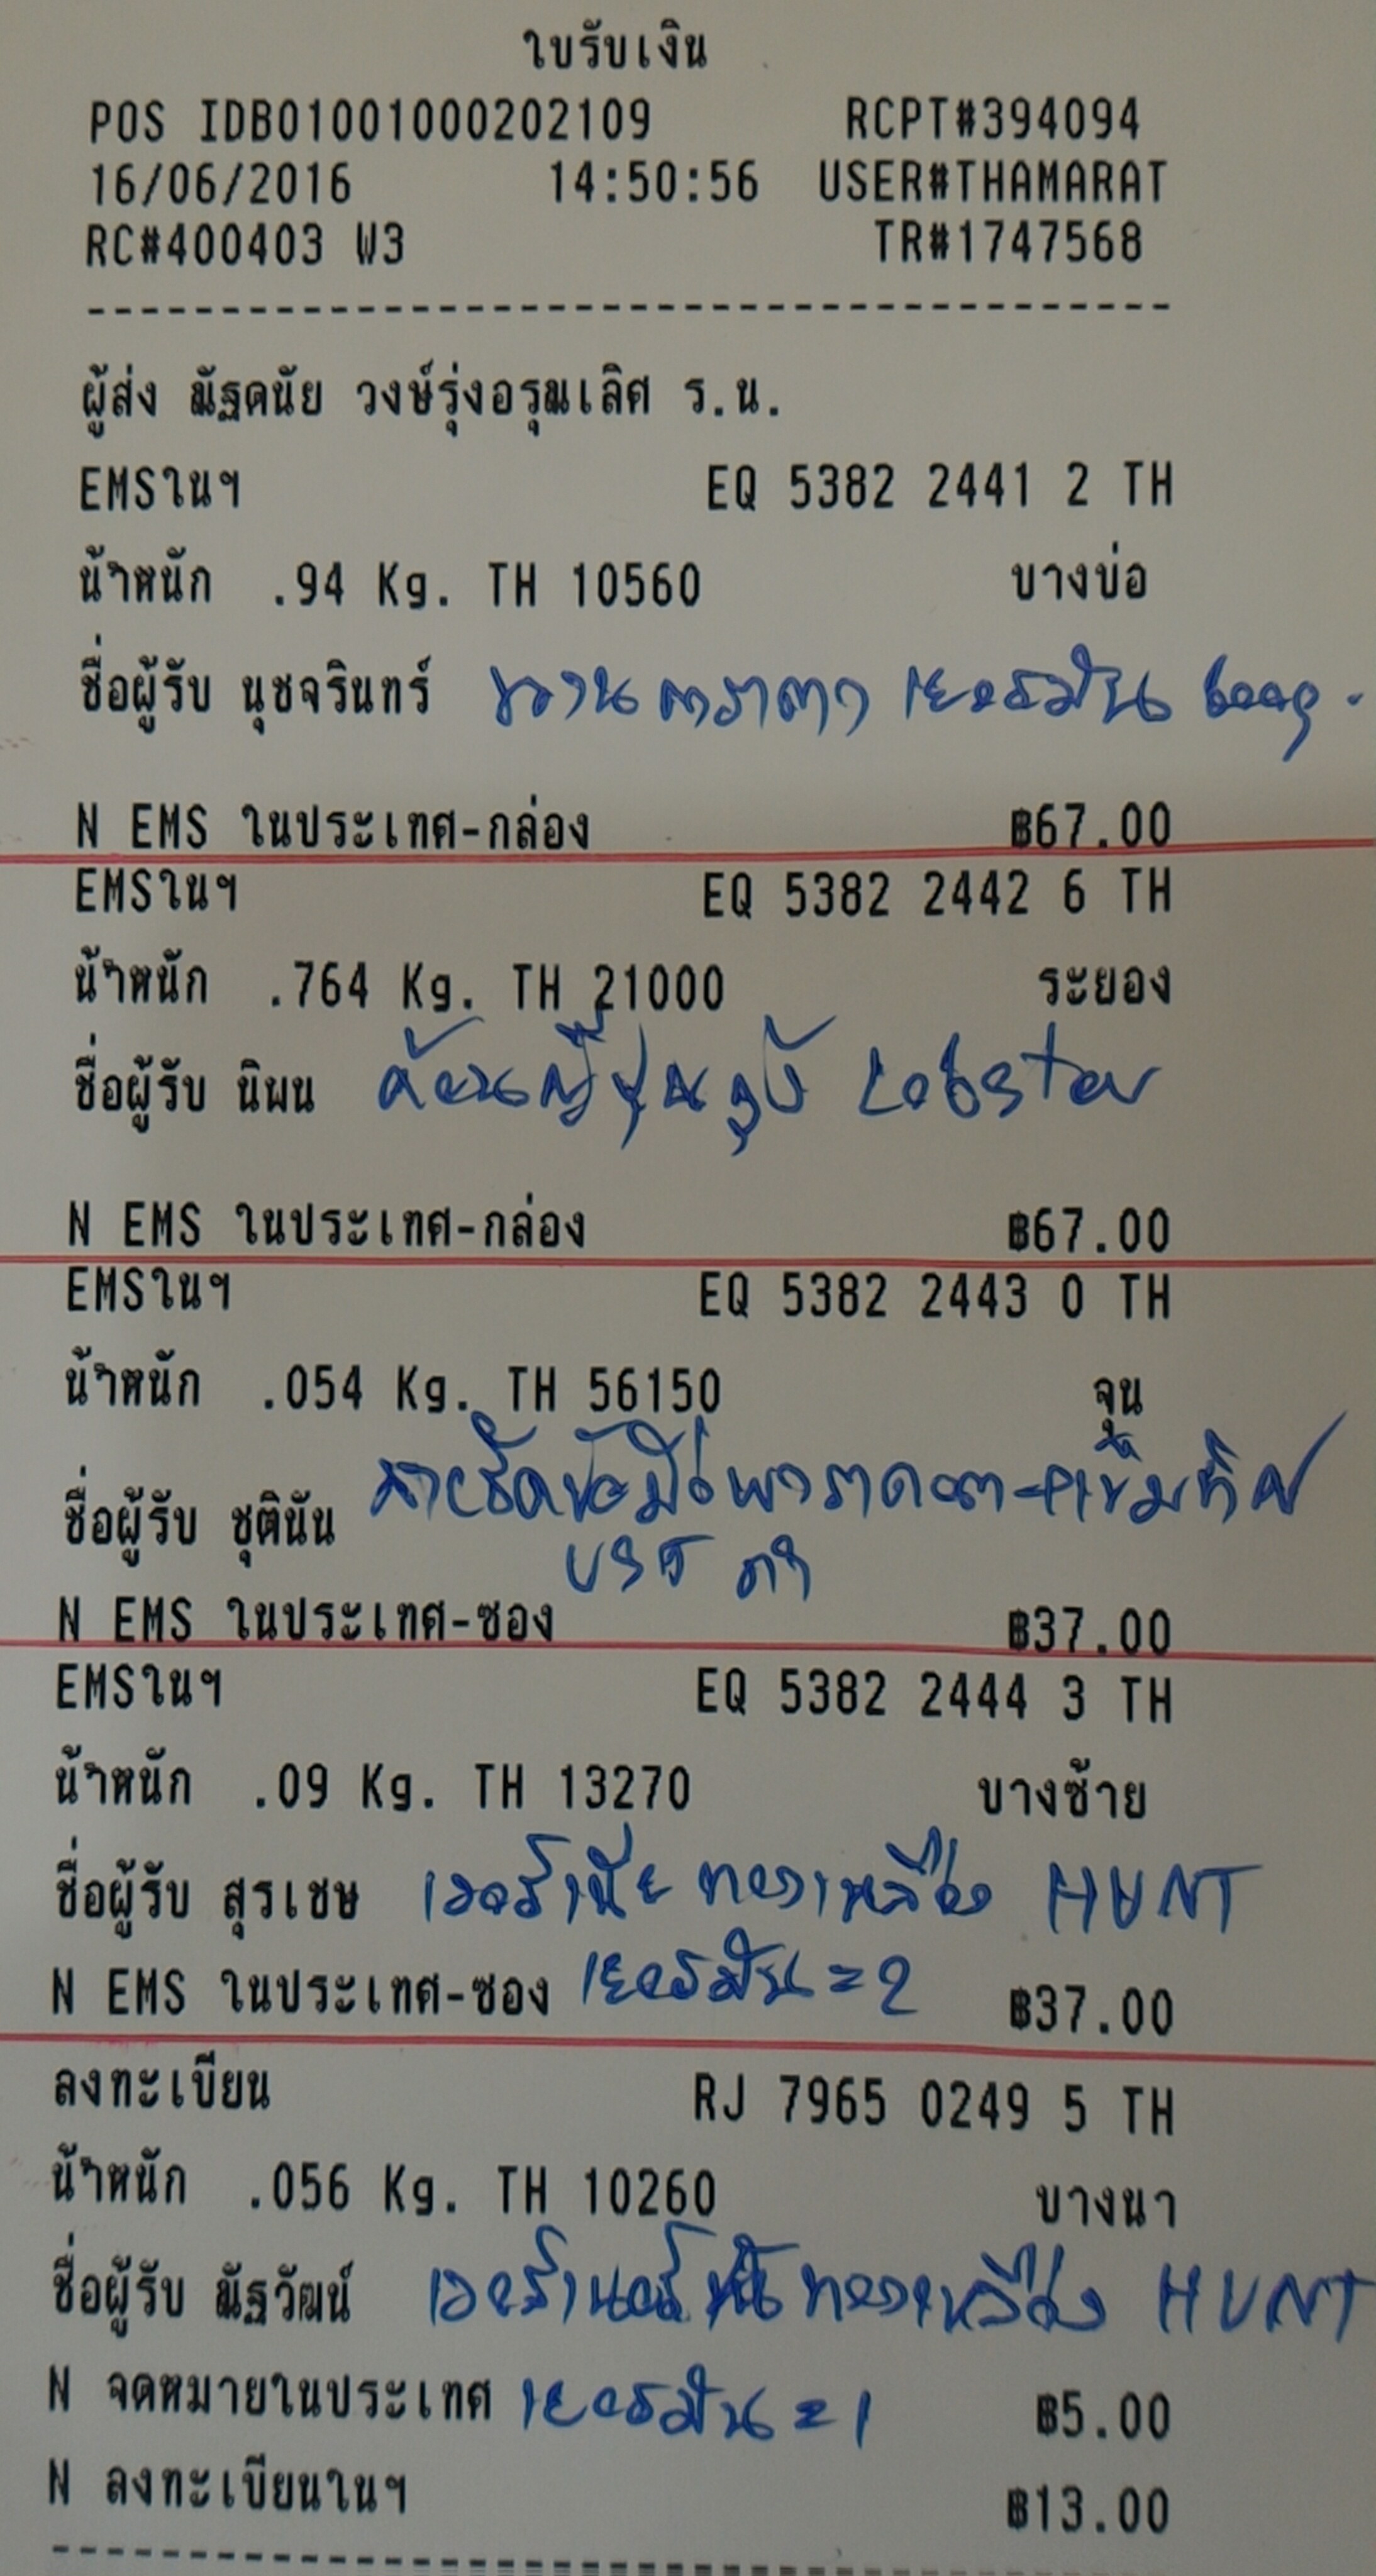 ใบรับเงิน
POS IDB01001000202109 RCPT#394094
16/06/2016 14:50:56 USER#THAMARAT
RC#400403 W3 TR#1747568
----------------------------------------
ผู้ส่ง ณัฐดนัย วงษ์รุ่งอรุณเลิศ ร.น.
EMSในฯ EQ 5382 2441 2 TH
น้ำหนัก .94 Kg. TH 10560 บางบ่อ
ชื่อผู้รับ นุชจรินทร์ ขวาน ตราตา เยอรมัน 600g.
N EMS ในประเทศ-กล่อง ฿67.00
EMSในฯ EQ 5382 2442 6 TH
น้ำหนัก .764 Kg. TH 21000 ระยอง
ชื่อผู้รับ นิพน ค้อนญี่ปุ่น Lobster
N EMS ในประเทศ-กล่อง ฿67.00
EMSในฯ EQ 5382 2443 0 TH
น้ำหนัก .054 Kg. TH 56150 จุน
สายรัดข้อมือพาราคอต-เข็มทิศ
ชื่อผู้รับ ชุตินัน
ดำ
N EMS ในประเทศ-ซอง ฿37.00
EMSในฯ EQ 5382 2444 3 TH
น้ำหนัก .09 Kg. TH 13270 บางซ้าย
ชื่อผู้รับ สุรเชษ เวอร์เนีย ทองเหลือง HUNT
N EMS ในประเทศ-ซอง เยอรมัน = 2 ฿37.00
ลงทะเบียน RJ 7965 0249 5 TH
น้ำหนัก .056 Kg. TH 10260 บางนา
ชื่อผู้รับ ณัฐวัฒน์ ทองเหลือง HUNT
N จดหมายในประเทศ เยอรมัน = 1 ฿5.00
N ลงทะเบียนในฯ ฿13.00
----------------------------------------